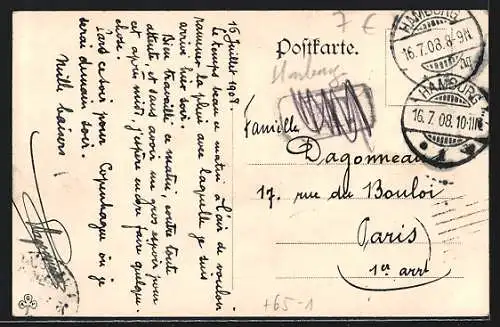 16 Juillet 1908.
Le temps beau ce matin à l'air de vouloir
ramener la pluie avec laquelle je suis
arrivé hier soir.
Bien travaillé ce matin, contre toute
attente, et sans avoir un gros espoir pour
cet après midi, j'espère encore faire quelque
chose.
Pars ce soir pour Copenhague où je
serai demain soir.
Mille baisers
7 €
Postkarte.
HAMBURG
16.7.08.8-9N
HAMBURG
16.7.08.10-11N
* 1 *
Famille
Dagonneau
17. rue du Bouloi
Paris
1er arrt
+65-1